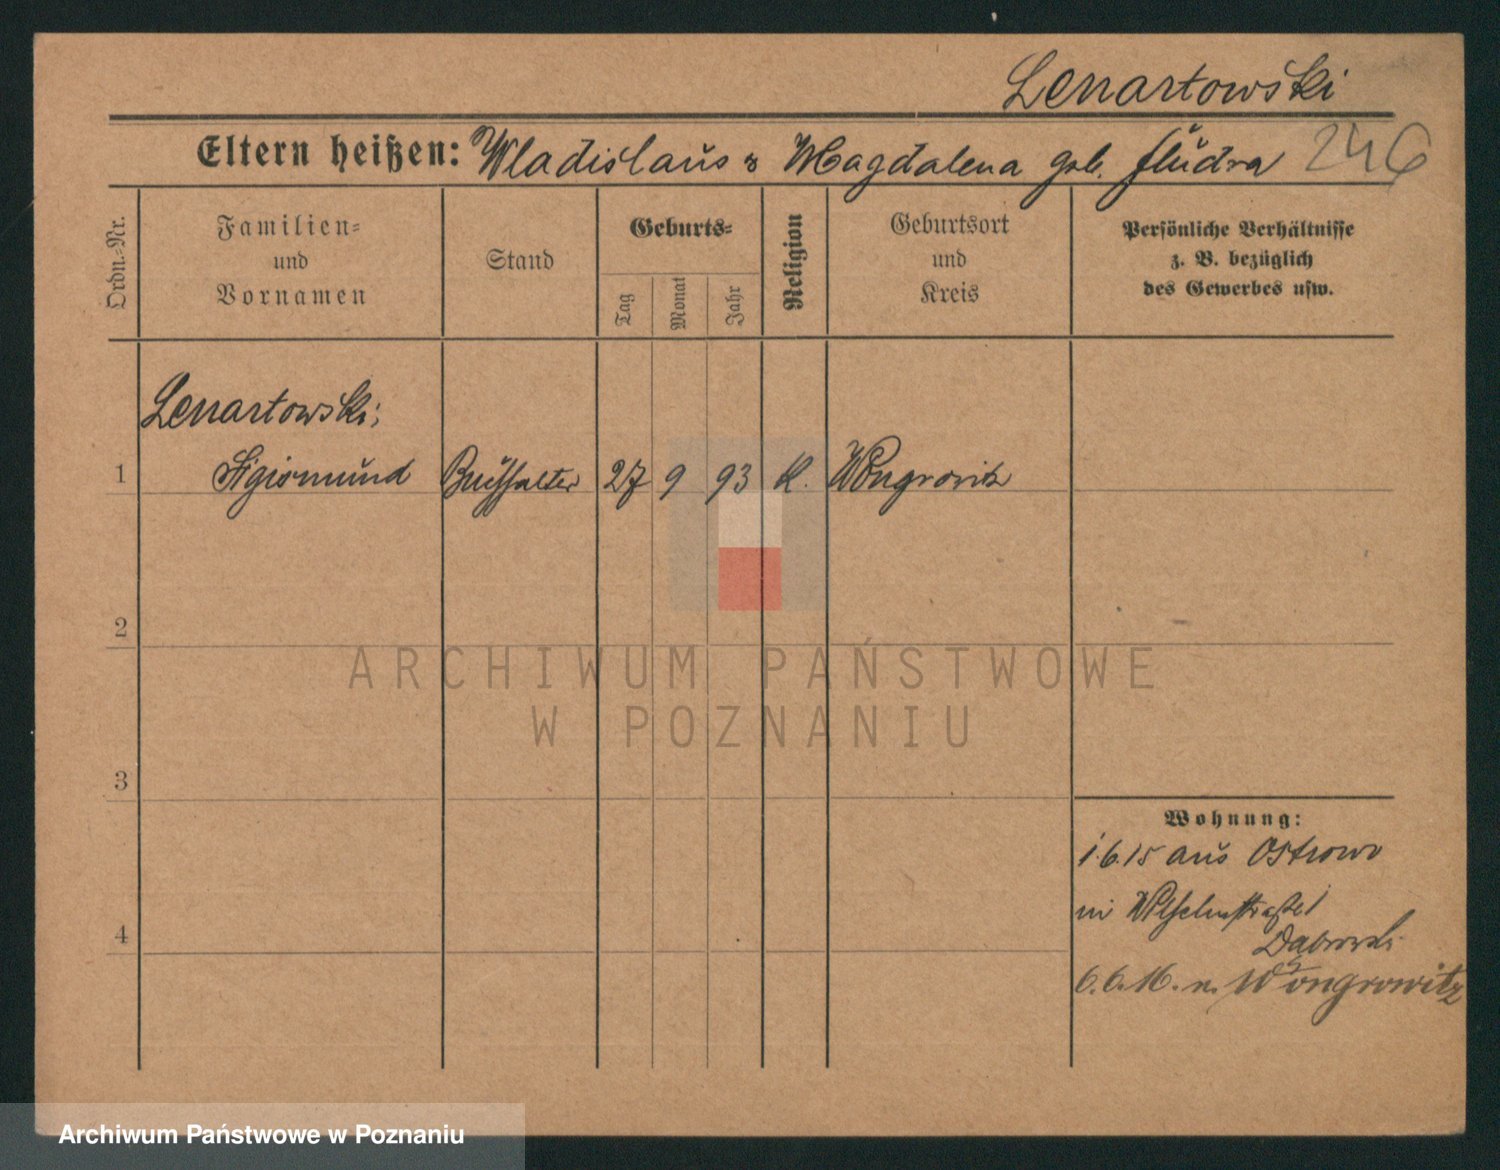 Lenartowski
Eltern heißen: Wladislaus u Magdalena geb. Fludra 246
Ordn.-Nr.
Familien-
und
Vornamen
Stand
Geburts-
Tag
Monat
Jahr
Religion
Geburtsort
und
Kreis
Persönliche Verhältnisse
z. B. bezüglich
des Gewerbes usw.
Lenartowski,
1 Sigismund Buchhalter 27 9 93 k. Wongrowitz
2
ARCHIWUM PAŃSTWOWE
W POZNANIU
3
Wohnung:
1.6.15 aus Ostrowo
in Wilhelmstraße 1
4
Dabrowski
6.6.16. n. Wongrowitz
Archiwum Państwowe w Poznaniu